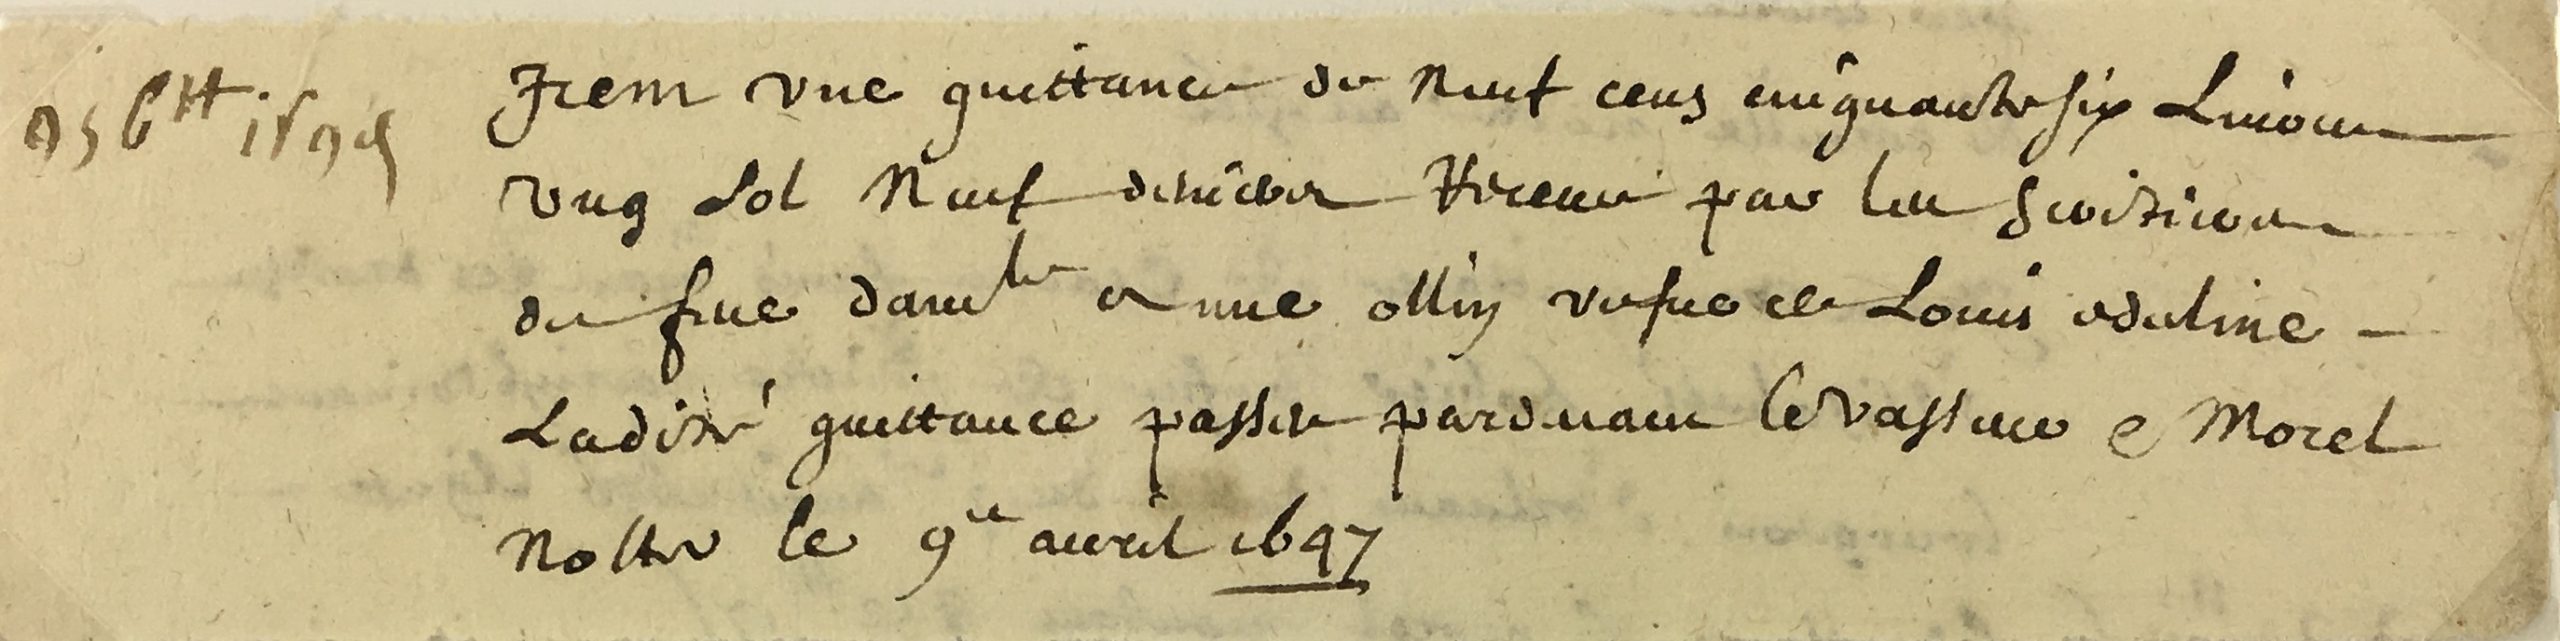 956 ₶ 1 s 9 d
Item une quittance de neuf cens cinquante six Livres
ung sol neuf deniers tirée par les heritiers
de feue dam^lle anne ollin vefue de Louis adeline -
Ladite quittance passée pardevant levasseur & Morel
No^res le 9^e avril 1647